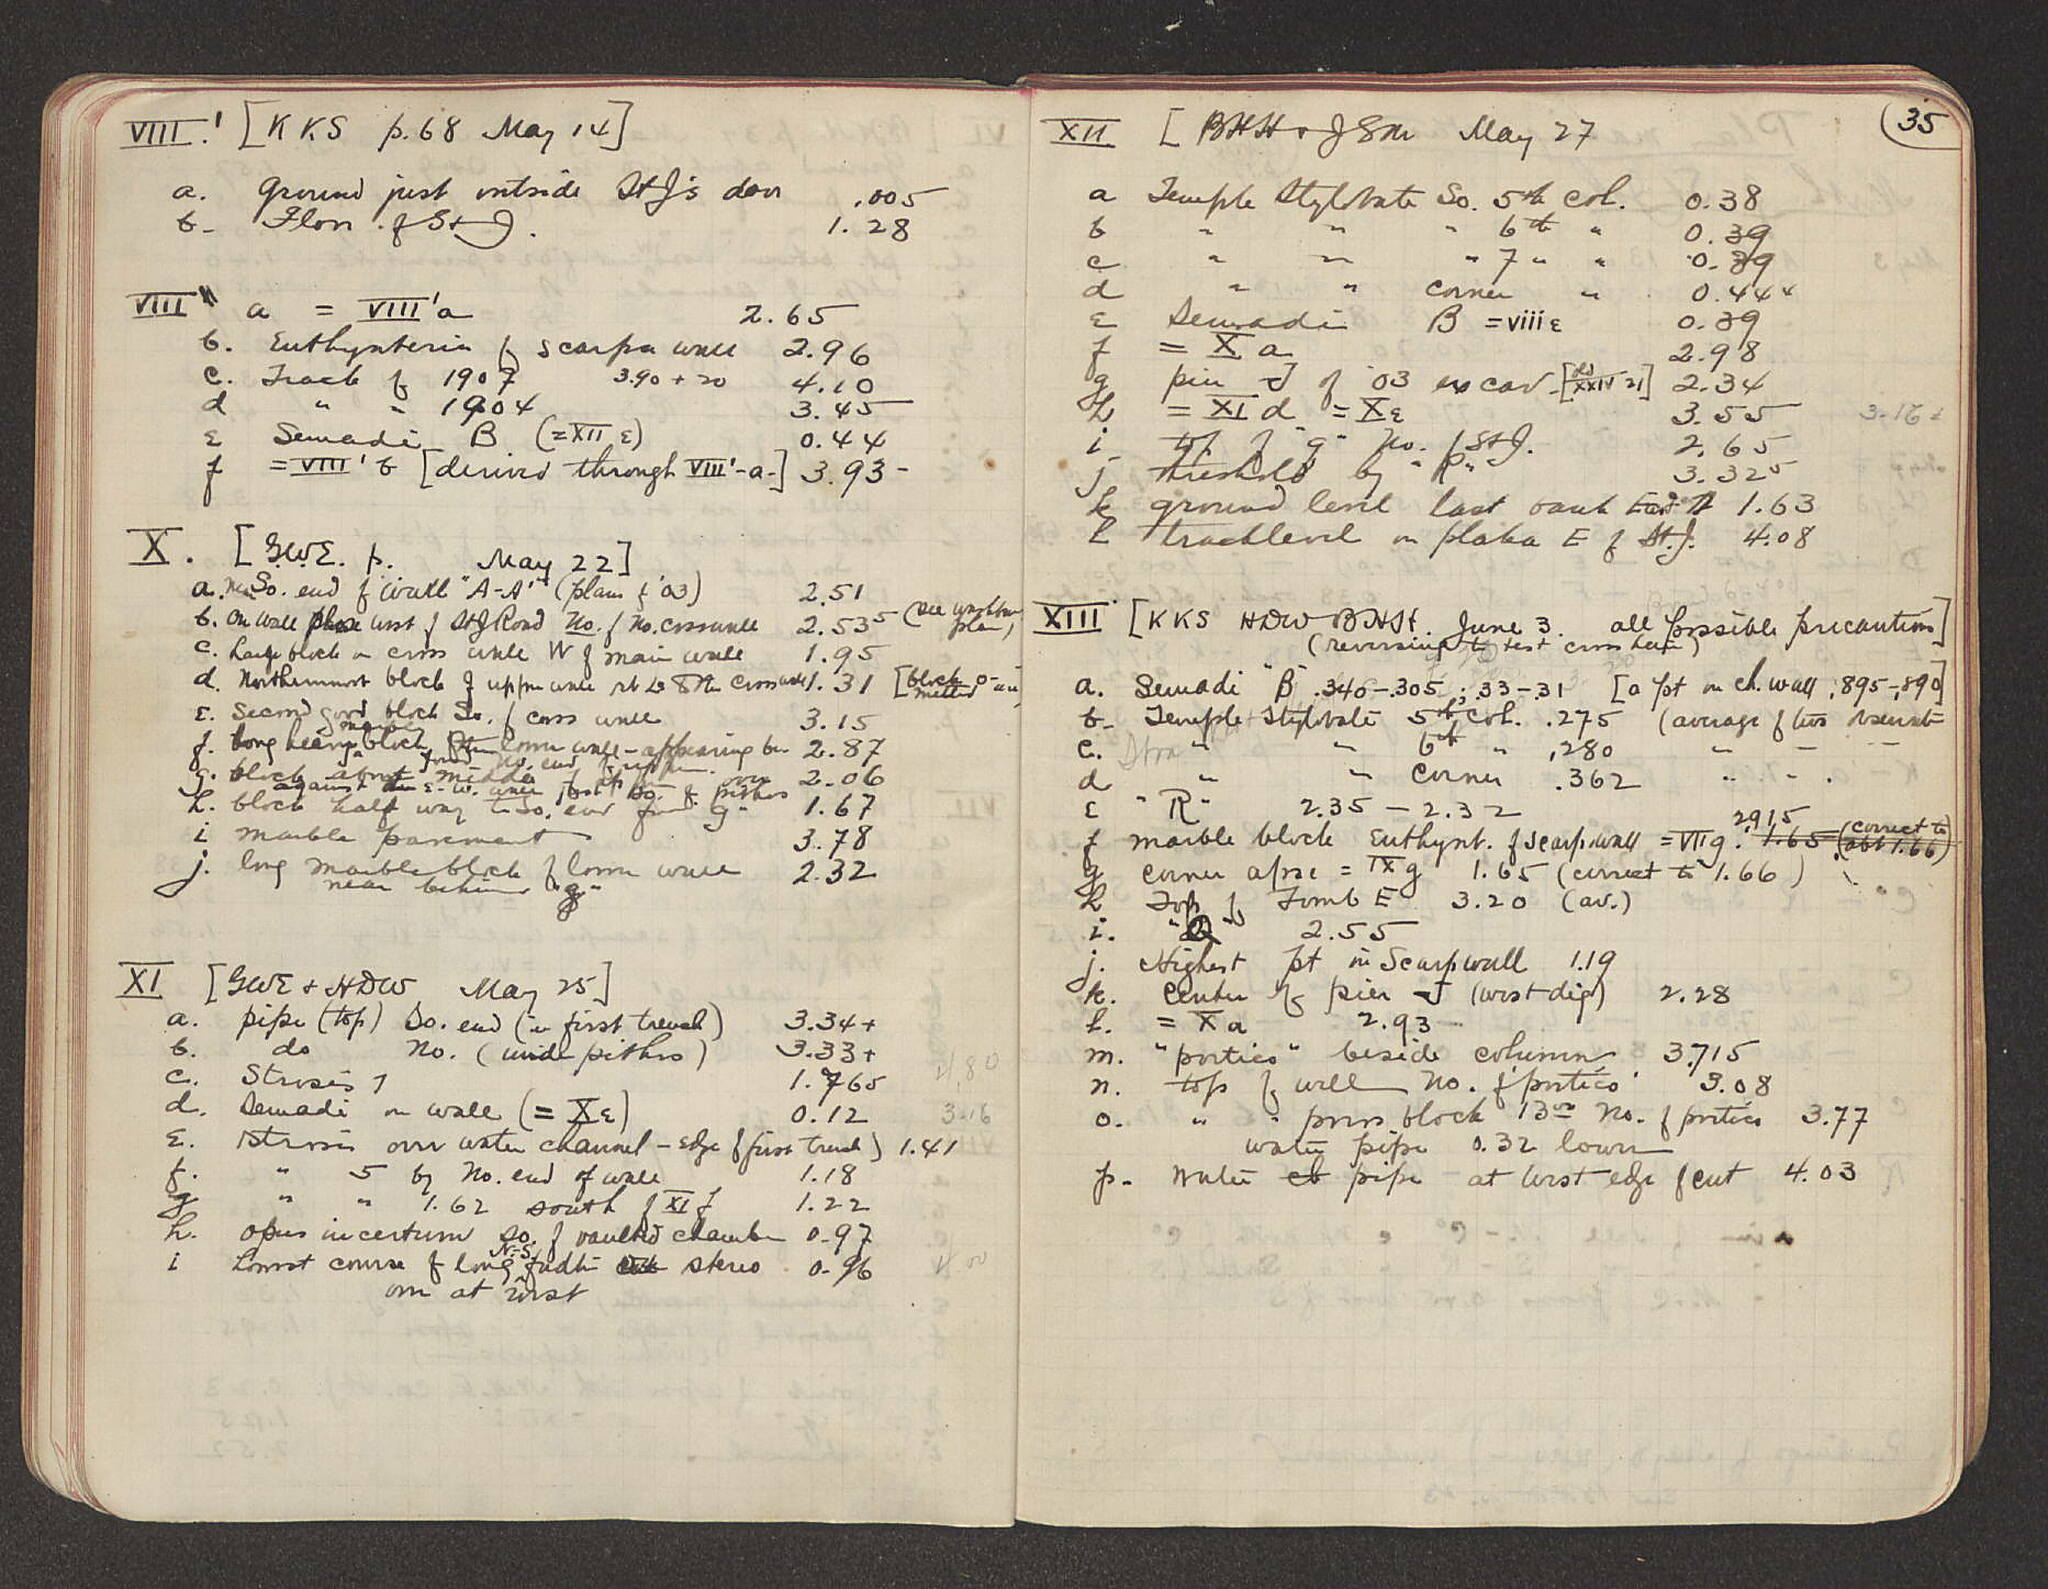 VIII.' [KKS p.68 May 14]
a. Ground just outside St J's door .005
b. Floor of St J. 1.28
VIII" a = VIII'a 2.65
b. Euthynteria of scarpa wall 2.96
c. Track of 1907 3.90 + 20 4.10
d " " 1904 3.45
ε Semadi B (= XII ε) 0.44
f = VIII'b [derived through VIII'-a-] 3.93-
X. [G.W.E. p. May 22]
a. So. end of wall "A-A'" (plan of '03) 2.51
b. On wall west of St J Road No. of No. crosswall 2.53⁵ (see plan)
c. Large block on cross wall W of main wall 1.95
d. Northernmost block of upper wall 1.31 [block omitted
ε. Second good block So. of cross wall 3.15
f. Long heavy marble block lower wall - appearing 2.87
found No. end of upper
g. block about middle of 2.06
against E-W. wall just So. of pithos
h. block half way to So. end from g" 1.67
i marble pavement 3.78
j. long marble block of lower wall 2.32
near behind "g"
XI [GWE + HDW May 25]
a. pipe (top) So. end (in first trench) 3.34+
b. do No. (under pithos) 3.33+
c. Strosis 1 1.765 4.80
d. Semadi on wall (= Xε) 0.12 3.16
ε. Strosis over water channel - edge of first trench) 1.41
f. " 5 by No. end of wall 1.18
g " " 1.62 south of XI f 1.22
h. opus incertum so. of vaulted chamber 0.97
i Lowest course of long N-S. stereo 0.96 4.00
one at west
35
XII [BHH + JSM May 27
a Temple Stylobate So. 5th Col. 0.38
b " " " 6th " 0.39
c " " " 7 " " 0.39
d " " corner " 0.44⁴
ε Semadi B = viii ε 0.39
f = X a 2.98
g pier J of '03 excav. [old XXIV 21] 2.34
h = XI d = Xε 3.55
i top of "g" No. of St J. 2.65
j threshold by "R" 3.32⁵
k ground level last vault East 1.63
l track level on plaka E of St. J. 4.08
XIII [KKS HDW BHH. June 3. all possible precautions]
(reversing to test cross hair)
a. Semadi "B" .340-.305; .33-.31 [a pt on ch. wall .895-.890]
b- Temple Stylobate 5th Col. .275 (average of two
c. " " 6th " .280 " - -
d " " corner .362 " - .
ε "R" 2.35 - 2.32
f marble block Euthynt. of scarp wall = VII g. 2.915 1.65 (correct to abt 1.66)
g corner apse = IX g 1.65 (correct to 1.66)
h Top of Tomb E 3.20 (av.)
i. "Q" 2.55
j. Highest pt in Scarp wall 1.19
k. Center of pier J (west dig) 2.28
l. = X a 2.93
m. "portico" beside column 3.715
n. top of wall No. of "portico" 3.08
o. " " poros block No. of portico 3.77
water pipe 0.32 lower
p. Water ch pipe - at west edge of cut 4.03